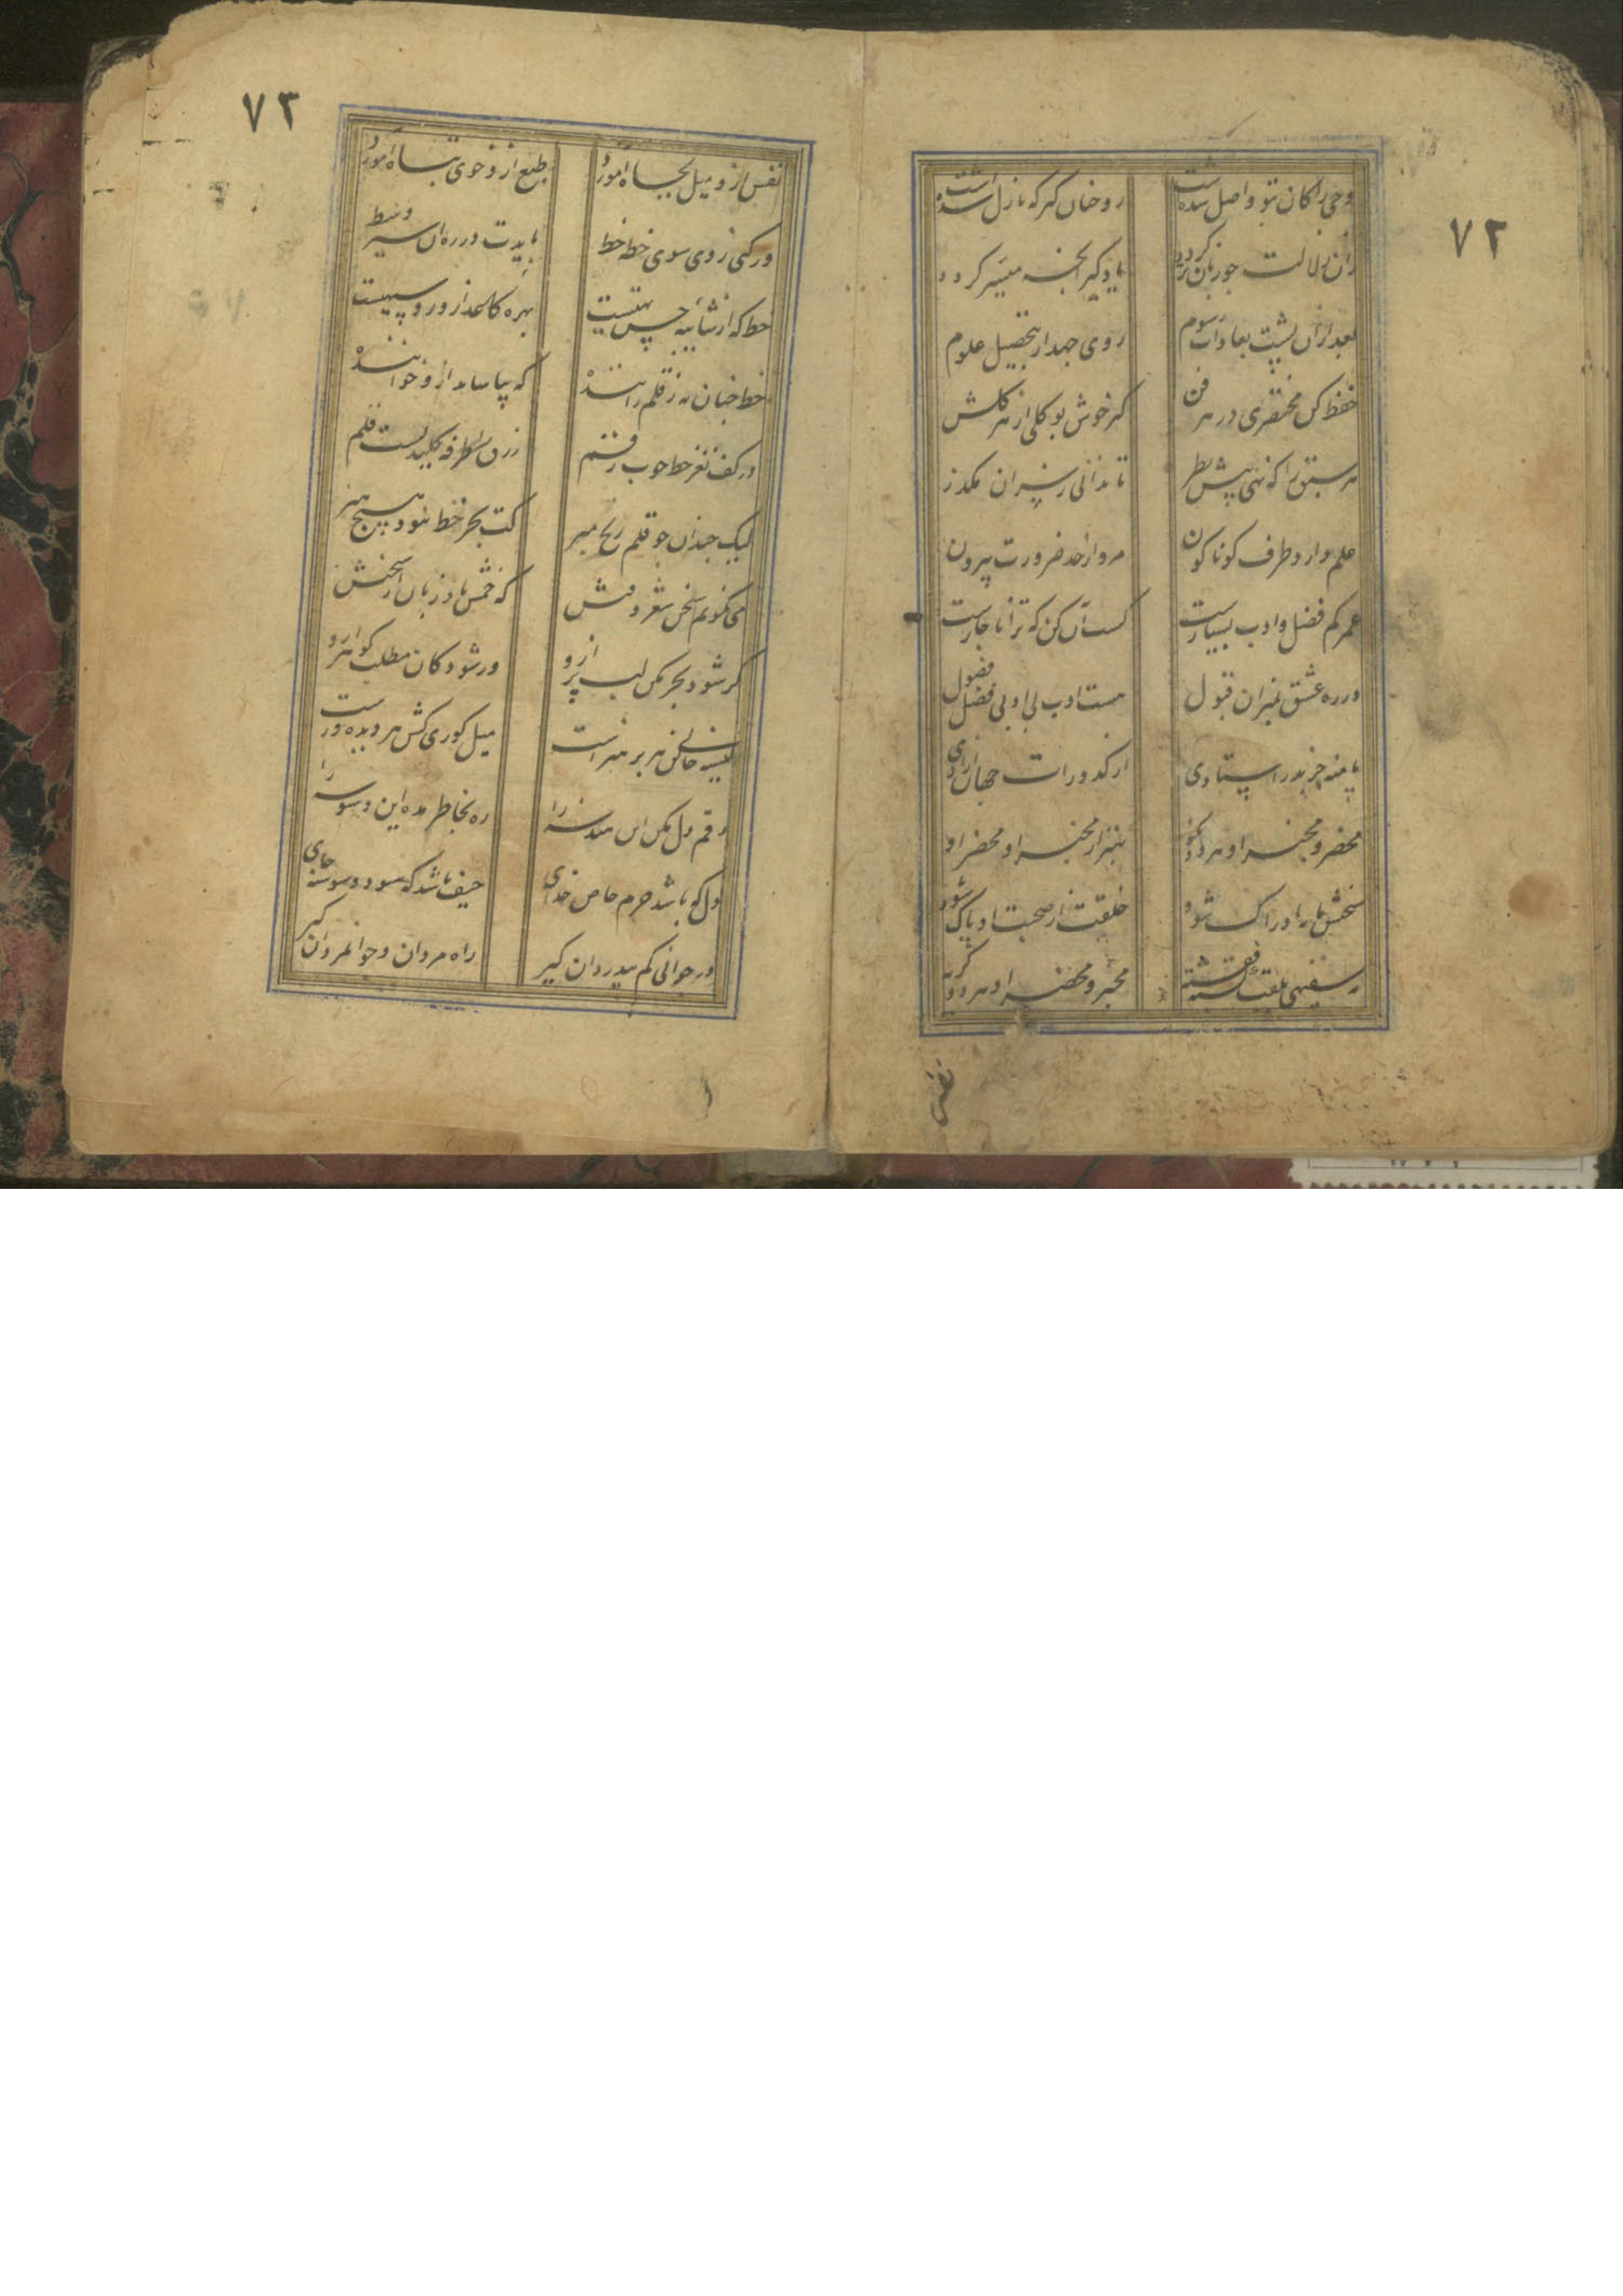 ۷۲
وحی راکان بتو واصل شده است
رو چنان گیر که نازل شده است
زان زلالت چو زبان تر گردد
یاد گیر آنچه میسر گردد
بعد ازان پشت بعادات و رسوم
روی جهد آر بتحصیل علوم
حفظ کن مختصری در هر فن
گیر خوش بو گلی از هر گلشن
هر سبق را که نهی پیش نظر
تا ندانی زسر آن مگذر
علم دارد طرف گوناگون
مرو از حد ضرورت بیرون
عمر کم فضل و ادب بسیارست
کسب آن کن که ترا ناچارست
در ره عشق نمیزان قبول
هست ادب بی ادبی فضل فضول
پا منه جز بدر استادی
از کدورات جهان آزادی
مخضر و مخبر او هر دو نکو
بهتر از مخبر او محضر او
سخنش مایه ادراک شود
خلقت از صحبت او پاک شود
نه سفیهی بلقب گشته فقیه
مخبر و محضر او هر دو کریه
نفس
۷۳
نفس ازو میل بجاه آموزد
طبع ازو خوی تباه آموزد
ور کنی روی سوی خطه خط
بایدت در ره آن سیر وسط
خط که از شائبه حسن تهیست
بهره کاغذ ازو روسیهیست
خط چنان به ز قلم راننده
که بیاساید ازو خواننده
در کف نغز خط خوب رقم
رزق را طرفه کلیدیست قلم
لیک چندان چو قلم رنج مبر
کت بجز خط نبود هیچ هنر
می نگویم سخن شعر و فنش
که خمش باد زبان از سخنش
گر شود بحر مکن لب تر ازو
ور شود کان مطلب گوهر ازو
کیسه خالی کن هر پر هنرست
میل کوری کش هر دیده ورست
رقم دل مکن این هندسه را
ره بخاطر مده این وسوسه را
دل که باشد حرم خاص خدای
حیف باشد که شود وسوسه جای
در جوانی کم بیدردان گیر
راه مردان و جوانمردان گیر